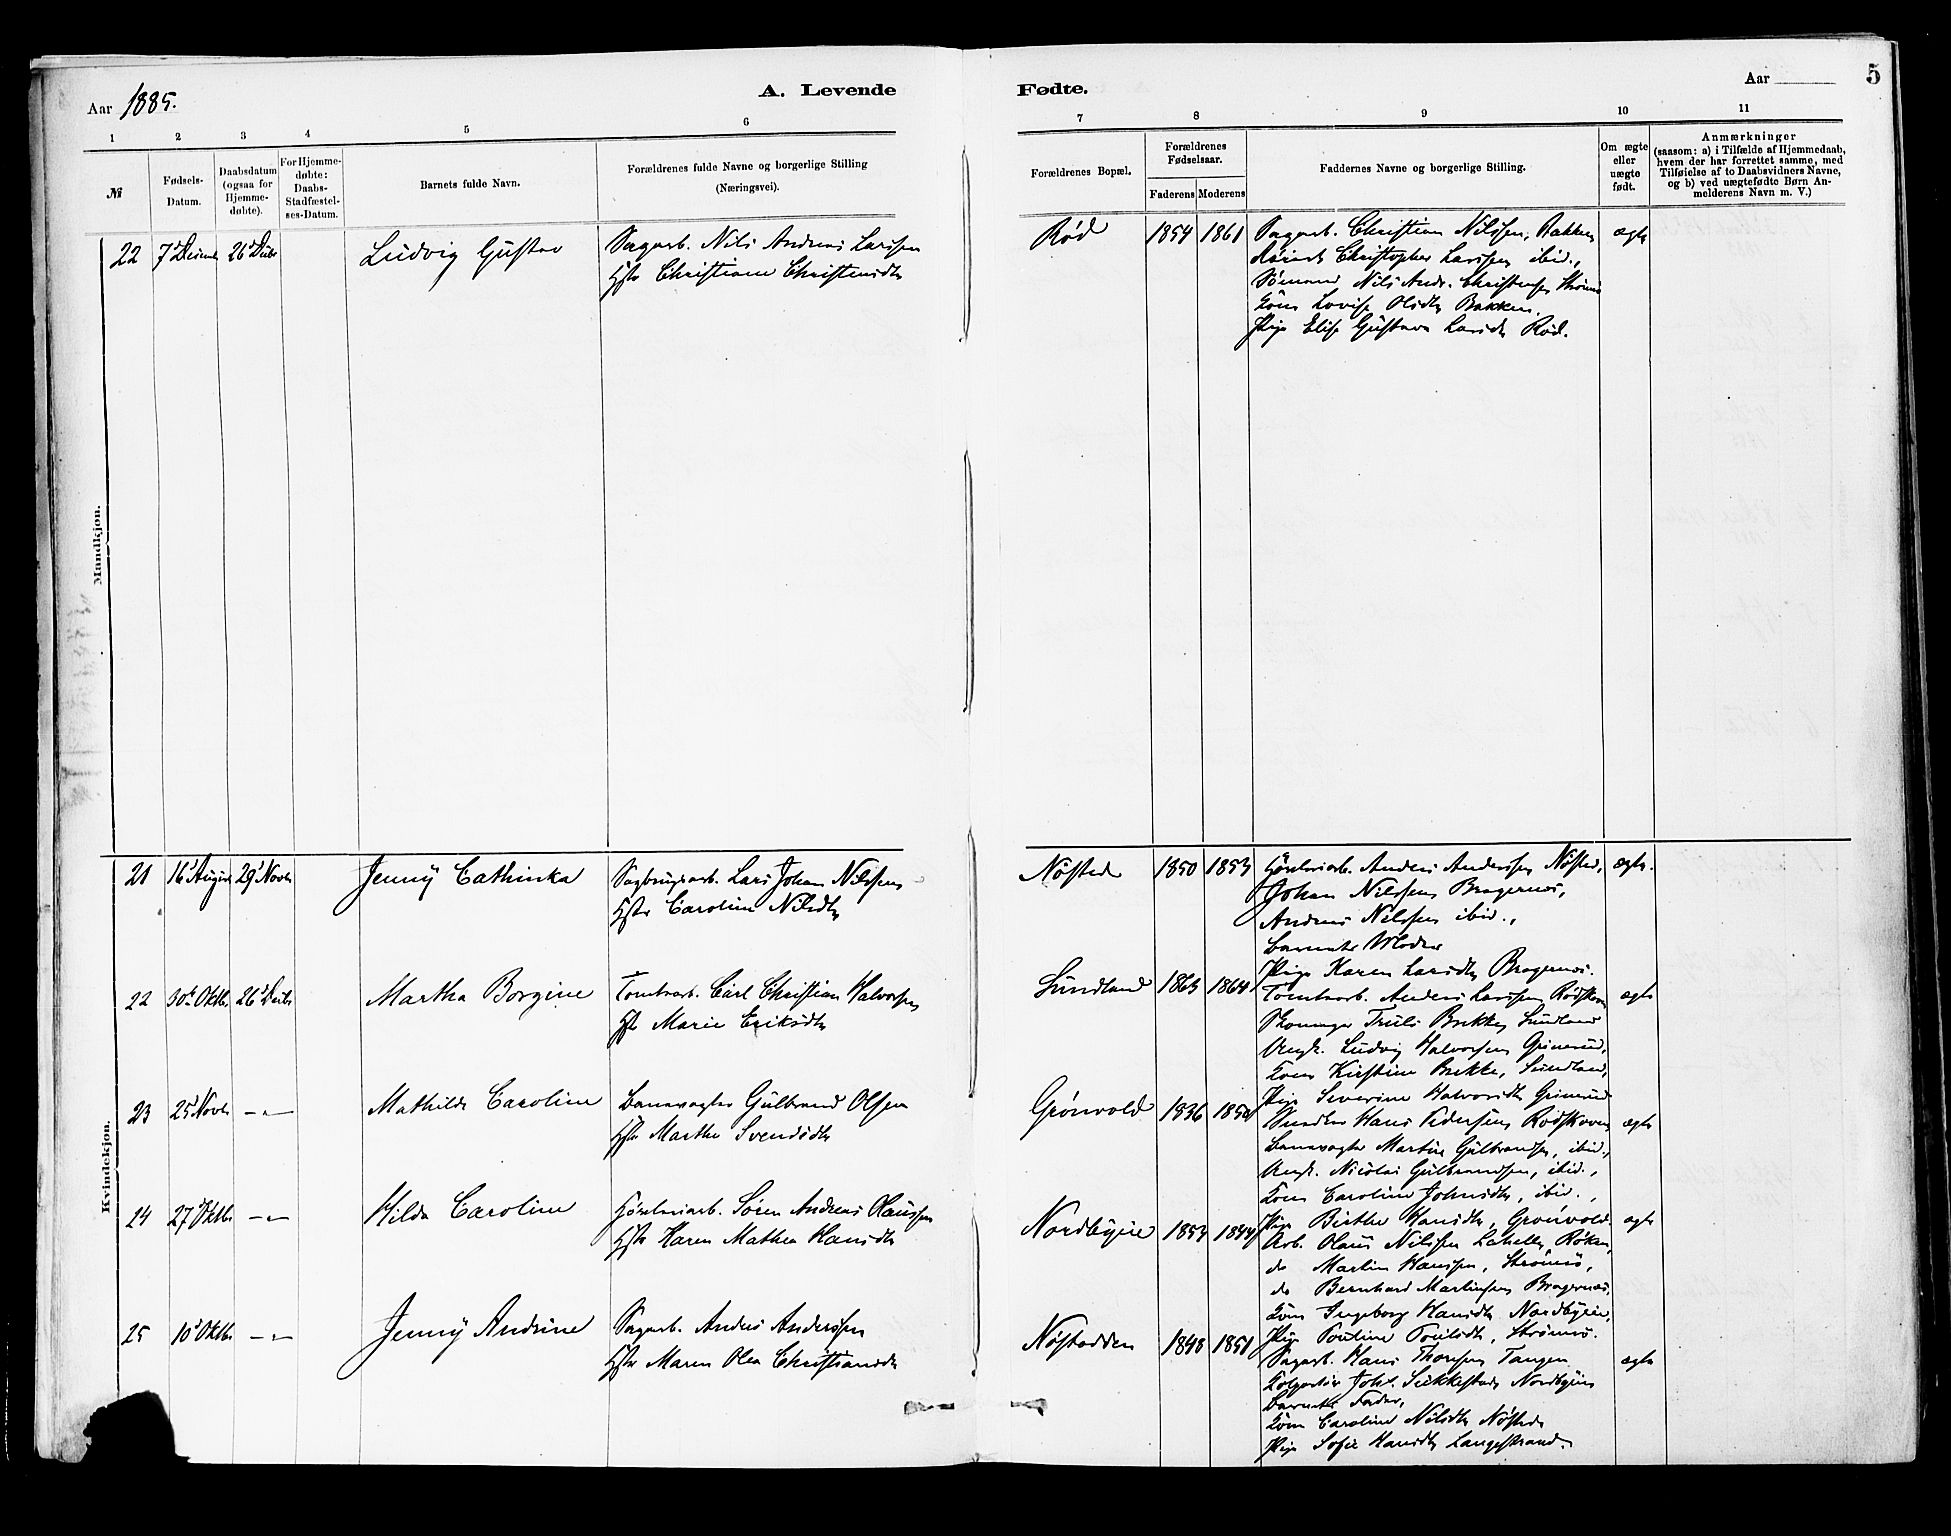 Aar 1885.
A. Levende
Fødte.
Aar
5
1 2 3 4 5 6 7 8 9 10 11
№
Fødsels-
Datum.
Daabsdatum
(ogsaa for
Hjemme-
døbte).
For Hjemme-
døbte:
Daabs-
Stadfæstel-
ses-Datum.
Barnets fulde Navn.
Forældrenes fulde Navne og borgerlige Stilling
(Næringsvei).
Forældrenes Bopæl.
Forældrenes
Fødselsaar.
Faderens Moderens
Faddernes Navne og borgerlige Stilling.
Om ægte
eller
uægte
født.
Anmærkninger
(saasom: a) i Tilfælde af Hjemmedaab,
hvem der har forrettet samme, med
Tilføielse af to Daabsvidners Navne,
og b) ved uægtefødte Børn An-
melderens Navn m. V.)
Mandkjøn.
22 26 Ludvig Gustav
Sagarb. Nils Andreas Larssen
Hstr Christiane
Rød 1854 1861 ægte
Sagarb. Christian Nilssen, Bakken
Christopher Larssen ibid.,
Sømand Nils Andr. Christensen Strømsø
Kone Lovise Olsdtr Bakken,
Pige Elise Gustava Larsdtr Rød.
Kvindekjøn.
21 16 August 29 Novbr Jenny Cathinka
Sagbrugsarb. Lars Johan Nilssen
Hstr Caroline Nilsdtr
Nøsted 1850 1853 ægte.
Anders Anderssen Nøsted,
Johan Nilssen Bragernæs,
Andreas Nilssen ibid.,
Barnets Moder
Pige Karen Larsdtr Bragernæs.
22 30 Oktbr 26 Martha Borgine
Tomtearb. Carl Christian Halvorsen
Hstr Marie Eriksdtr
Sundland 1863 1864 ægte
Tomtearb. Anders Larssen Rødskoven
Truls Brekke Sundland
Ungk. Ludvig Halvorsen Grinerud,
Kone Kirstine Brekke, Sundland,
Pige Severine Halvorsdtr Grinerud
23 25 Novbr -"- Mathilde Caroline
Banevogter Gulbrand Olsen
Hstr Marthe Svendsdtr
Grønvold 1836 1850 ægte
Hans Pedersen Rødskoven
Banevogter Martin Gulbrandsen, ibid.,
Ungk. Nicolai Gulbrandsen, ibid.,
Kone Caroline Johnsdtr, ibid.,
Pige Birthe Hansdtr, Grønvold.
24 27 Oktbr -"- Hilda Caroline
Søren Andreas Hanssen
Hstr Karen Mathea Hansdtr
Nordbyeie 1853 1844 ægte
Arb. Olaus Nilssen Røken,
do Martin Hanssen, Strømsø,
do Bernhard Martinsen Bragernæs,
Kone Ingeborg Hansdtr Nordbyeie,
Pige Pauline Strømsø.
25 10 Oktbr -"- Jenny Andrine
Sagarb. Anders Anderssen
Hstr Maren Olea Christiansdtr
Nøstodden 1848 1851 ægte
Sagarb. Hans Thoresen Tangen
Joh. Nordbyeie
Barnets Fader,
Kone Caroline Nilsdtr Nøsted
Pige Sofie Hansdtr Langestrand.